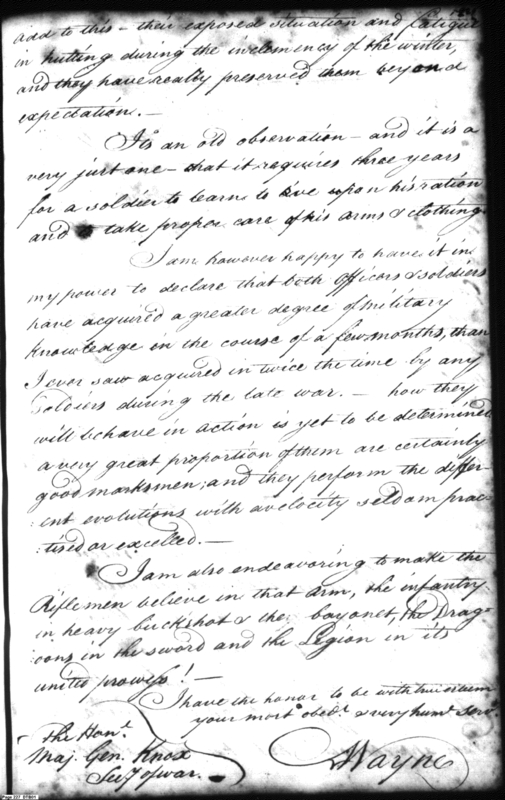 add to this – their exposed situation and fatigue
in hutting during the inclemency of the winter,
and they have really preserved them beyond
expectation. —
It's an old observation – and it is a
very just one – that it requires three years
for a soldier to learn to live upon his ration
and to take proper care of his arms & clothing.
I am however happy to have it in
my power to declare that both Officers & soldiers
have acquired a greater degree of military
knowledge in the course of a few months, than
I ever saw acquired in twice the time by any
Soldiers during the late war. — how they
will behave in action is yet to be determined
a very great proportion of them are certainly
good marksmen; and they perform the differ-
:ent evolutions with a velocity seldom prac
:tised or excelled. —
I am also endeavoring to make the
Riflemen believe in that arm, the infantry
in heavy buckshot & the bayonet, the Drag
oons in the sword and the Legion in its
united prowess! —
I have the honor to be with true esteem
your most obedt. & very humb Servt.
The Honl.
Maj. Gen. Knox
Secy of war.
Wayne